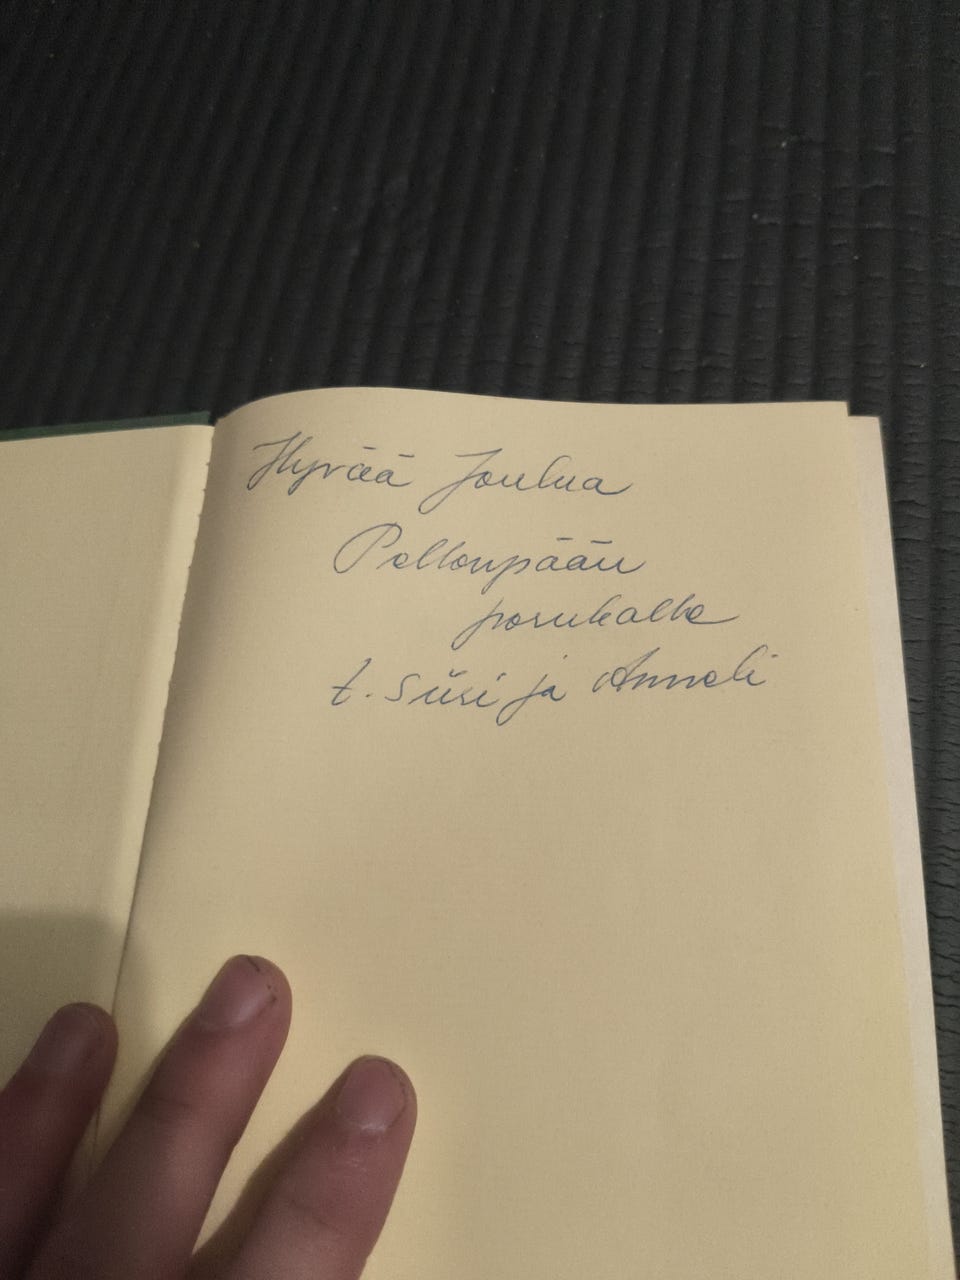 Hyvää Joulua
Pellonpään
porukalle
t. Siiri ja Anneli